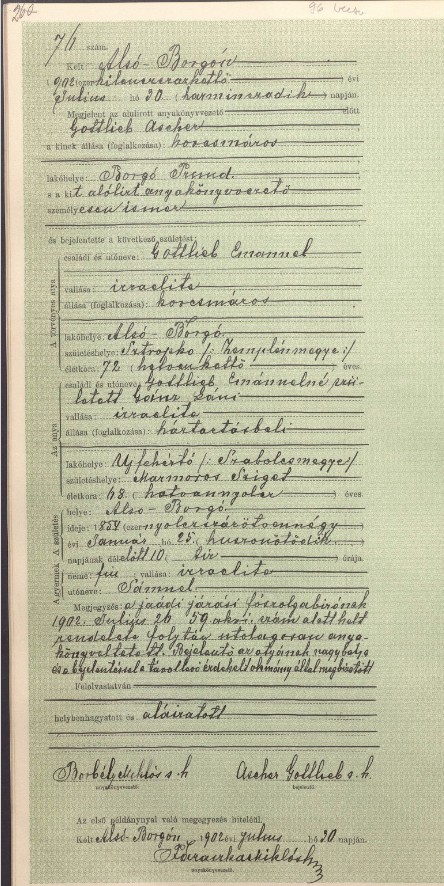 96
7/1 szám.
Kelt Alsó-Borgón
1902 (ezerkilenczszázkettő) évi
Julius hó 30 (harminczadik) napján.
Megjelent az alulirott anyakönyvvezető előtt
Gottlieb Ascher
a kinek állása (foglalkozása): korcsmáros
lakóhelye: Borgó Prund.
s a kit alólirt anyakönyvvezető
személyesen ismer
és bejelentette a következő születést:
A törvényes atya
családi és utóneve: Gottlieb Emanuel
vallása: izraelita
állása (foglalkozása): korcsmáros
lakóhelye: Alsó-Borgó
születéshelye: Sztropko /: Zemplénmegye :/
életkora: 72 hetvenkettő éves.
Az anya
családi és utóneve: Gottlieb Emánuelné szü-
letett Gánz Sáni
vallása: izraelita
állása (foglalkozása): háztartásbeli
lakóhelye: Ujfehértó /: Szabolcsmegye :/
születéshelye: Marmoros Sziget
életkora: 68 hatvannyolcz éves.
A születés
helye: Alsó-Borgó
ideje: 1854 (ezernyolczszázötvennégy
évi Januás hó 25. huszonötödik
napjának délelőtt 10 tíz órája.
A gyermek
neme: fiu vallása: izraelita
utóneve: Sámuel
Megjegyzés: a jaádi járási főszolgabirónak
1902. Julius 26 59. akvi. szám alatt kelt
rendelete folytán utolagosan anya-
könyveltetett. Bejelentő az atyának nagybátja
és a bejelentéssel a távollevő érdekelt okmány által megbizatott
Felolvastatván
helybenhagyatott és aláiratott
Borbély Miklós s. h Ascher Gottlieb s. h.
anyakönyvvezető. bejelentő.
Az első példánynyal való megegyezés hiteléül.
Kelt Alsó-Borgón 1902 évi Julius hó 30 napján.
anyakönyvvezető.